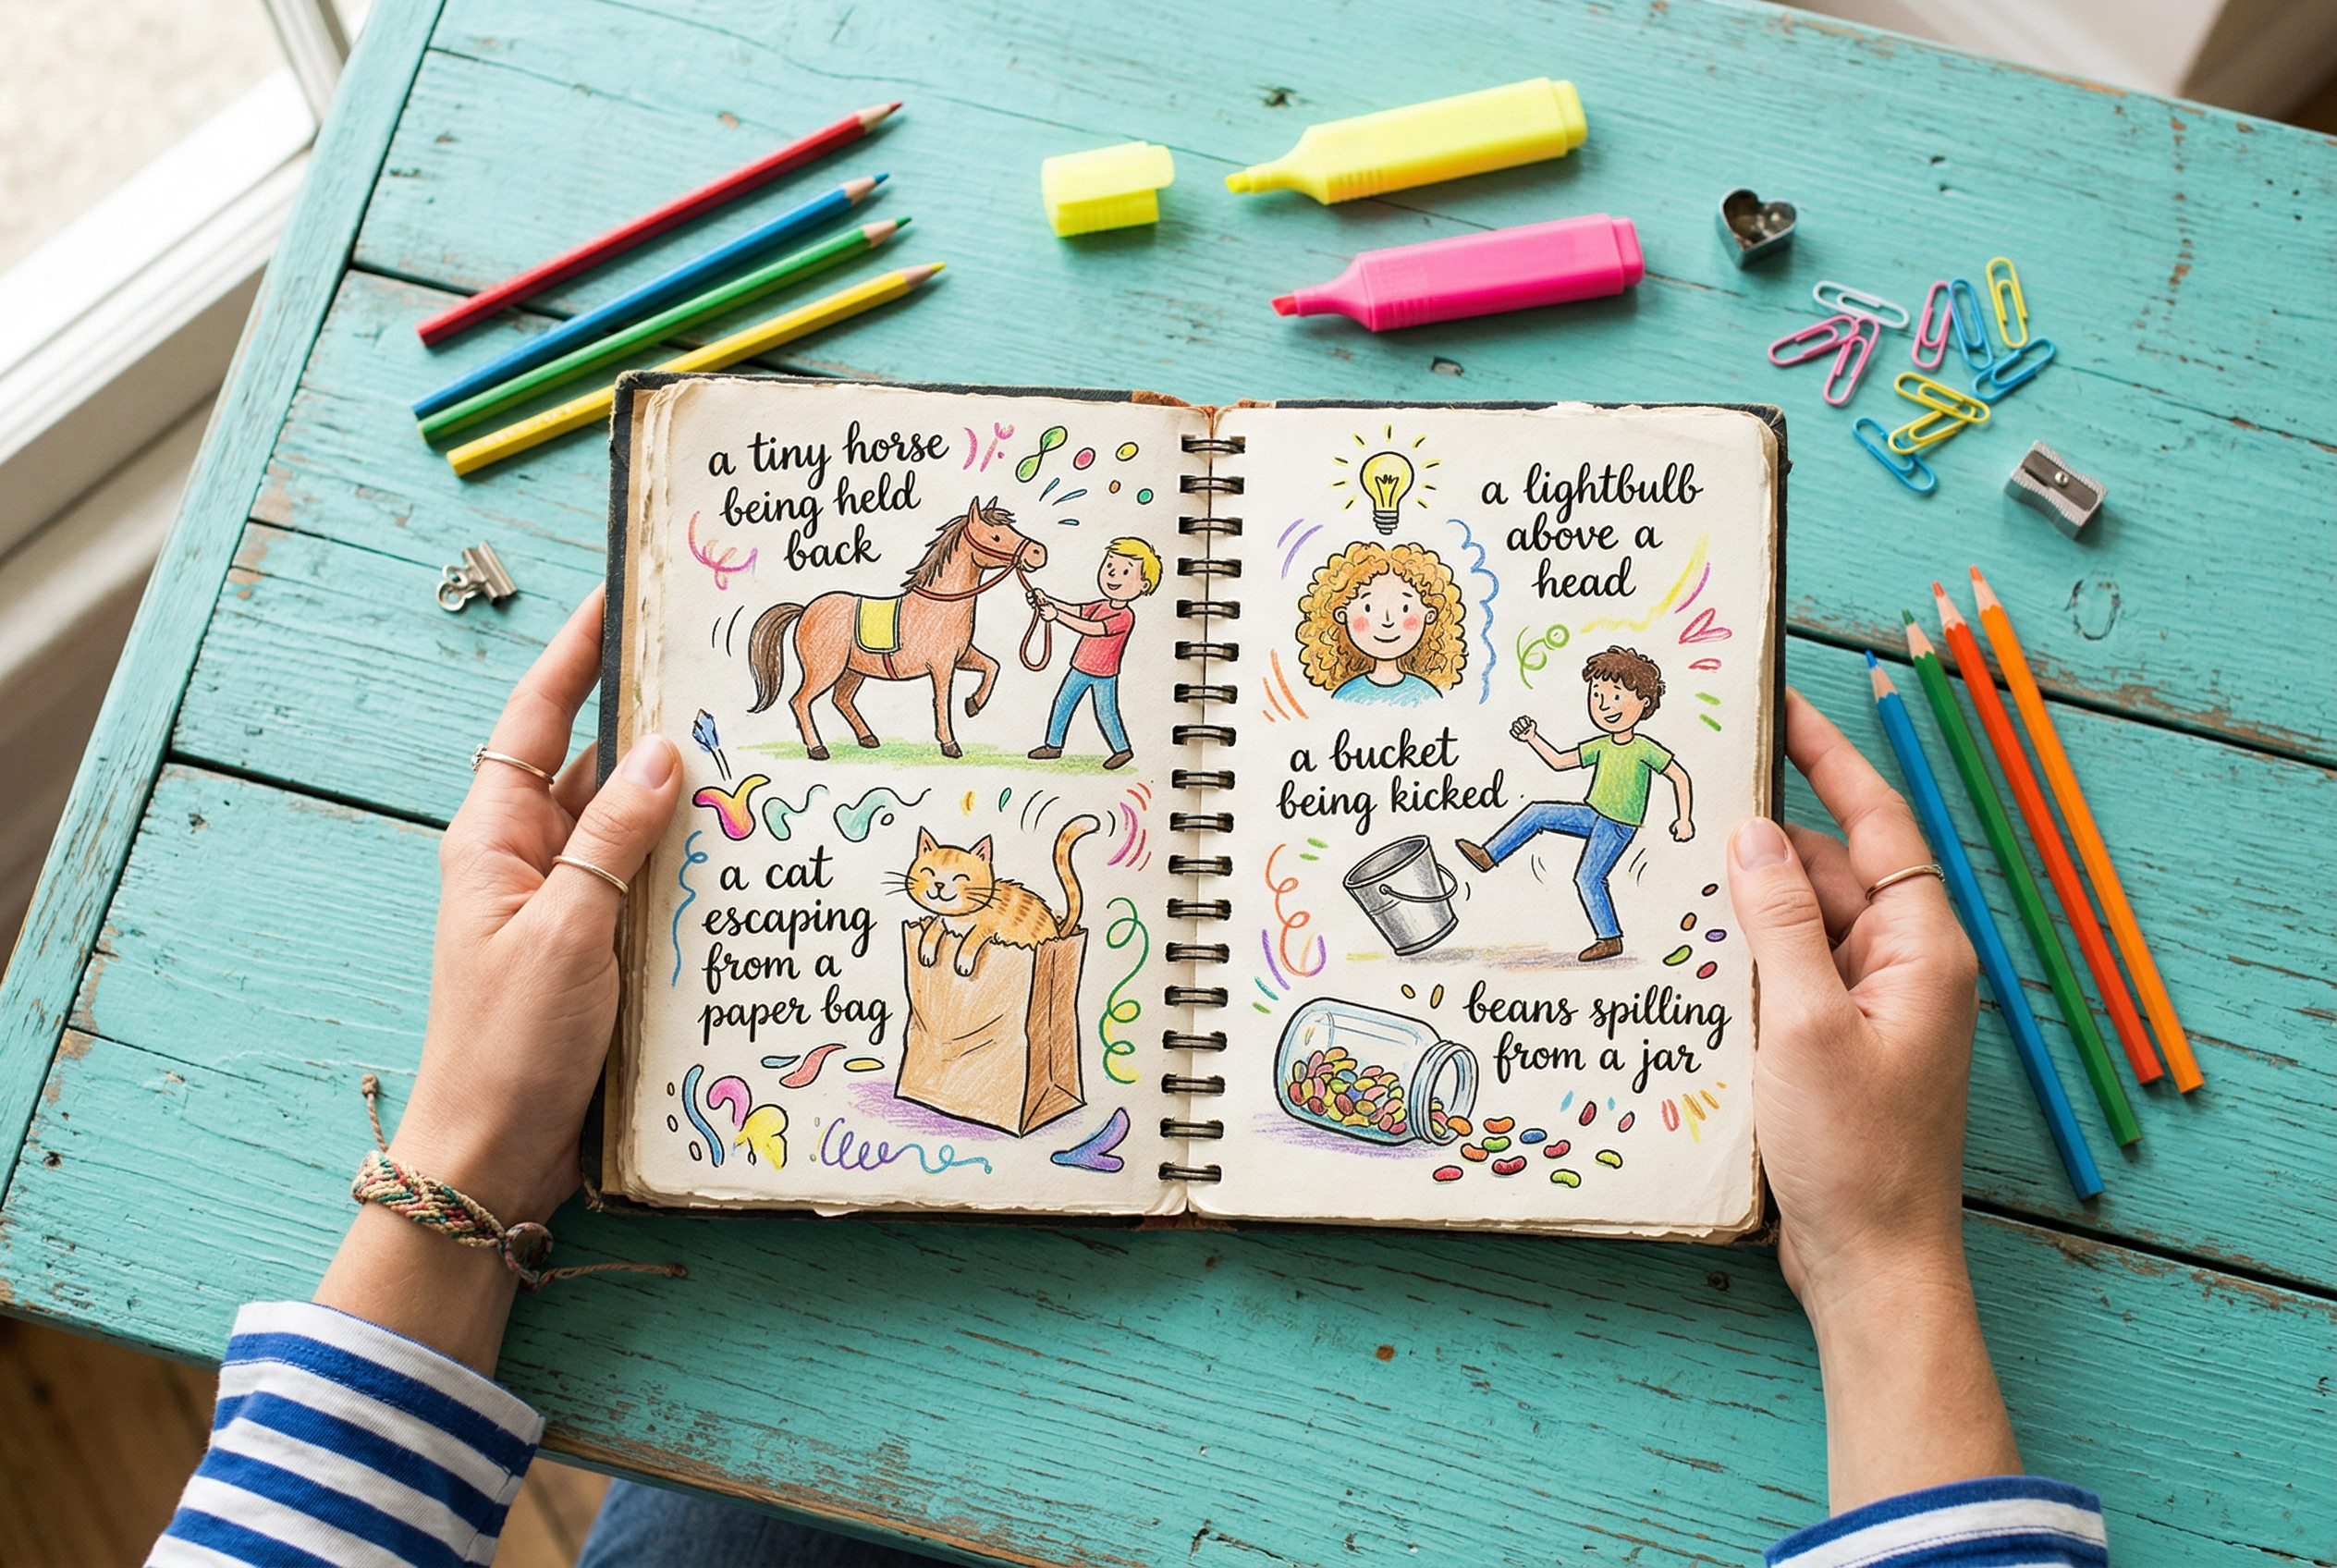 a tiny horse
being held
back
a cat
escaping
from a
paper bag
a lightbulb
above a
head
a bucket
being kicked
beans spilling
from a jar